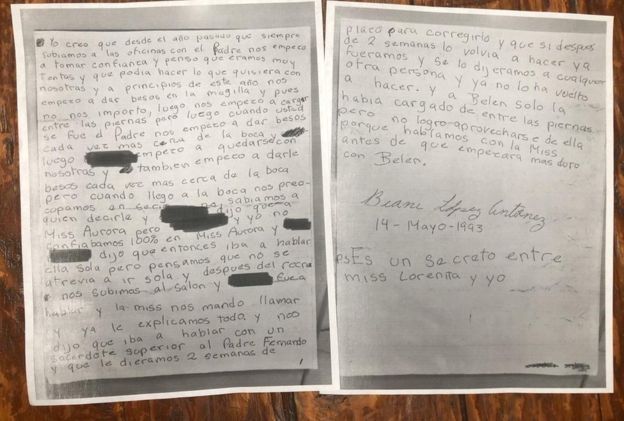 Yo creo que desde el año pasado que siempre
subiamos a las oficinas con el Padre nos empeco
a tomar confianca y penso que eramos muy
tontas y que podia hacer lo que quisiera con
nosotras y a principios de este año nos
empeco a dar besos en la megilla y pues
no nos importo, luego nos empeco a cargar
entre las piernas pero luego cuando usted
se fue el Padre nos empeco a dar besos
cada vez mas cerca de la boca y
luego empeco a quedarse con
nosotras y tambien empeco a darle
besos cada vez mas cerca de la boca
pero cuando llego a la boca nos preo-
cupamos en serio no sabiamos a
quien decirle y dijo que a
Miss Aurora pero y yo no
confiabamos 100% en Miss Aurora y
dijo que entonces iba a hablar
ella sola pero pensamos que no se
atrevia a ir sola y despues del recreo
nos subimos al salon y fue a
hablar y la miss nos mando llamar
y ya le explicamos todo y nos
dijo que iba a hablar con un
sacerdote superior al Padre Fernando
y que le dieramos 2 semanas de
1
placo para corregirlo y que si despues
de 2 semanas lo volvia a hacer ya
fueramos y se lo dijeramos a cualquier
otra persona y ya no lo ha vuelto
a hacer. y a Belen solo la
habia cargado de entre las piernas
pero no logro aprovecharse de ella
porque hablamos con la Miss
antes de que empezara mas duro
con Belen.
López
14 - Mayo - 1993
ps Es un secreto entre
miss Lorenita y yo